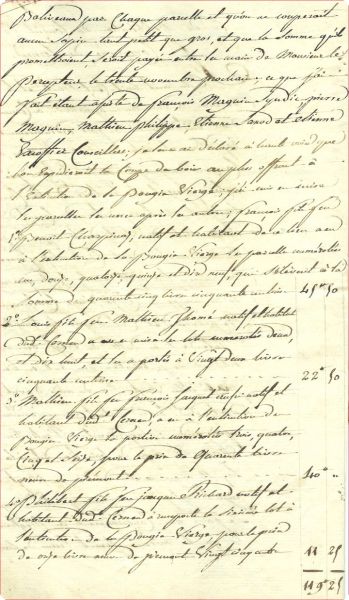 Baliveaux par Chaque parcelle et qu'on ne couperoit
aucun Sapin tant petit que gros, et que la Somme qu'ils
promettroient Seroit payée entre les mains de Monsieur le
Percepteur le trente novembre prochain, ce que j'ai
fait étant assisté de François Magnin Syndic, pierre
Magnin, Mathieu philippe, Etienne et Etienne
Conseillers, j'ai à declaré à haute voix que
l'on Expedieroit la Coupe de bois au plus offrant à
l'Extinction de la Bougie Vierge; j'ai mis en mise
les parcelles les unes après les autres; François fils feu
1° Benoit natif et habitant de ce lieu a eu
à l'extinction de la Bougie Vierge les parcelles numérotées
un, douze, quatorze, quinze et dix neuf, qui S'élèvent à la
Somme de quarante cinq livres cinquante centimes 45" 50
2° Louis fils feu Mathieu natif et habitant
dud. a eu en mise le lot numérotés deux,
et dix huit, et l'a portés à Vingt deux livres
cinquante centimes 22" 50
3° Mathieu fils feu François natif et
habitant dud. a eu à l'extinction de
Bougie Vierge les portions numérotées trois, quatre,
Cinq et Seize, pour le prix de Quarante livres
neuves de piemont 40 "
4° Philibert fils feu Richard natif et
habitant dud. a emporté le lot à
l'extinction de la Bougie Vierge, pour le prix
de onze livres neuves de piemont Vingt cinq cent. 11 25
119" 25